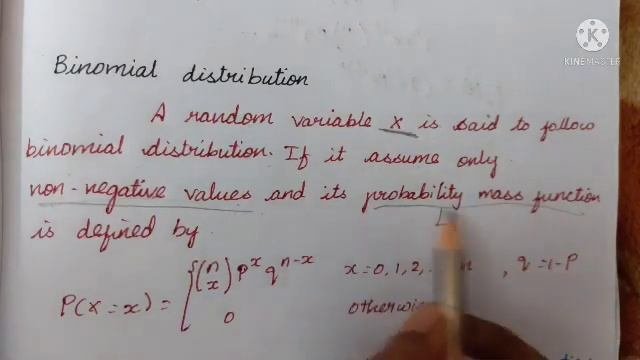 KINEMASTER
Binomial distribution
A random variable X is said to follow
binomial distribution. If it assume only
non-negative values and its probability mass function
is defined by
P(X=x) = { (n x) p^x q^n-x x=0,1,2, n , q=1-p
0